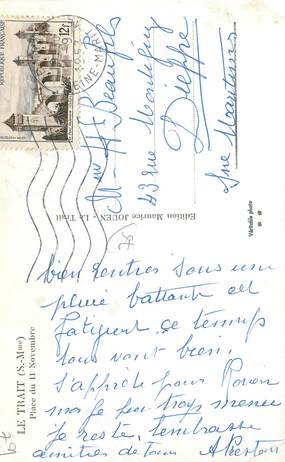 bien rentrés sous une
pluie battante cet
fatiguent ce temps
tous vont bien.
s'apprête pour Rouen
moi je peu trop mener
je reste, t'embrasse
amitiés de tous
LE TRAIT (S.-Mme)
Place du 11 Novembre
Edition Maurice JOUEN - Le Trait
Véritable photo
REPUBLIQUE FRANÇAISE
12F
43 rue Montigny
Dieppe
Sne Maritime